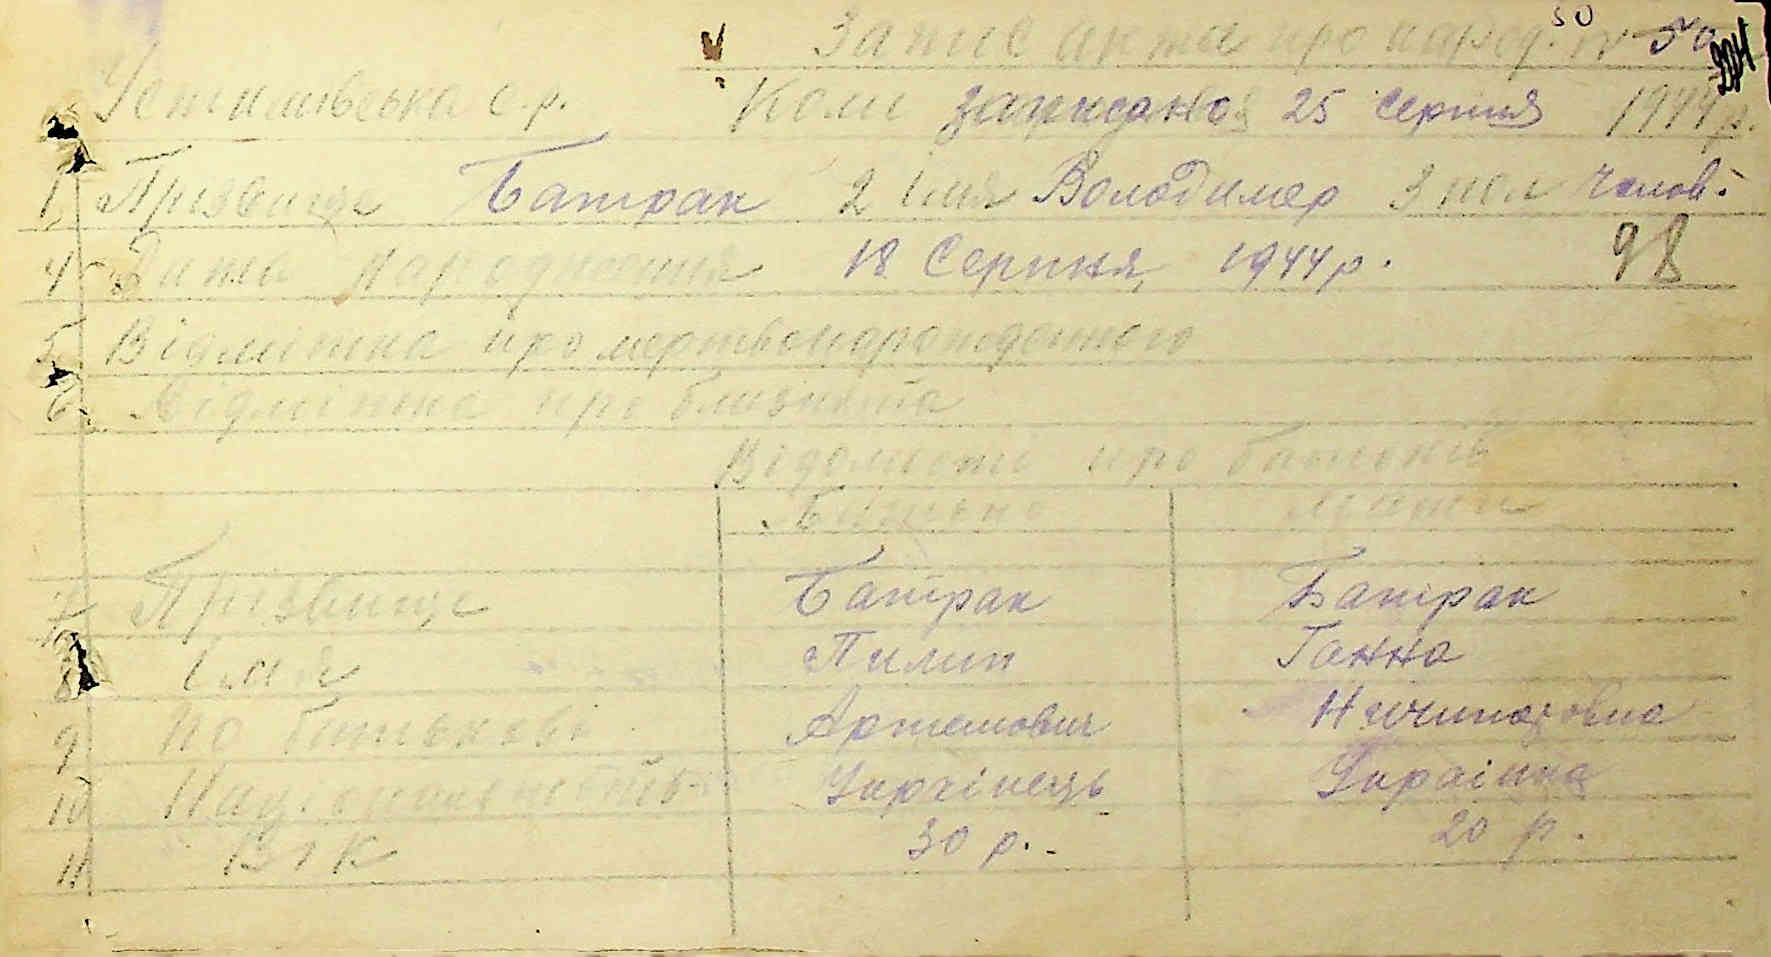 50
Запис акта про народ. № 50
204
Устимівська с.р. Коли записаной 25 серпня 1944 р.
1. Прізвище Батрак 2 Імя Володимер 3 пол Чолов.
4. Дата народження 18 Серпня 1944 р. 98
5. Відмітка про мертвонарожденного
6. Відмітка про близнята
Відомості про батьків
Батько Мати
7 Прізвище Батрак Батрак
8 Імя Пилип Ганна
9 По батькові Артемович Ничипоровна
10 Національність Українець Українка
11 Вік 30 р. 20 р.